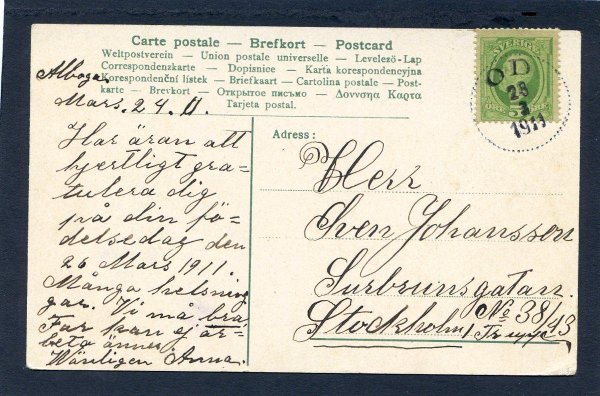 Carte postale — Brefkort — Postcard
Weltpostverein — Union postale universelle — Levelező-Lap
Correspondenzkarte — Dopisnice — Karta korespondencyjna
Korespondenční lístek — Briefkaart — Cartolina postale — Post-
karte — Brevkort — Открытое письмо — Δοννσηα Καρτα
Tarjeta postal.
Alboga.
Mars. 24. 11.
Har äran att
hjertligt gra-
tulera dig
på din fö-
delsedag den
26 Mars 1911.
Många helsnin-
gar. Vi må bra
Far kan ej ar-
beta ännu.
Vänligen Anna.
SVERIGE
5
O D
3
1911
Adress:
Herr
Sven Johansson
Surbrunsgatan.
No 38/43
Stockholm